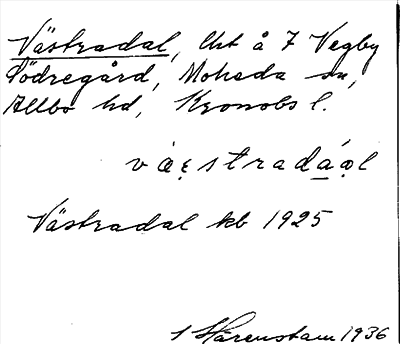 Västradal, lht å 7 Vegby
Södregård, Moheda sn,
Allbo hd, Kronobs l.
Västradal kb 1925
Härenstam 1936